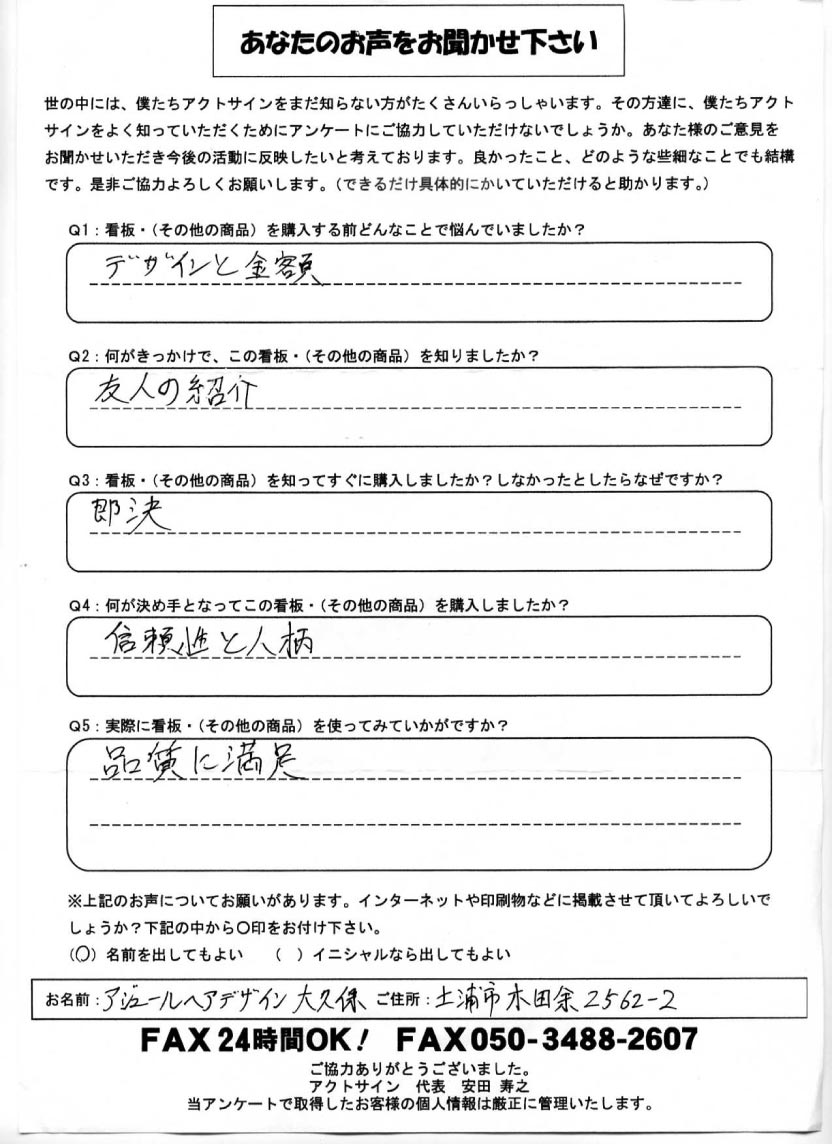 あなたのお声をお聞かせ下さい
世の中には、僕たちアクトサインをまだ知らない方がたくさんいらっしゃいます。その方達に、僕たちアクト
サインをよく知っていただくためにアンケートにご協力していただけないでしょうか。あなた様のご意見を
お聞かせいただき今後の活動に反映したいと考えております。良かったこと、どのような些細なことでも結構
です。是非ご協力よろしくお願いします。（できるだけ具体的にかいていただけると助かります。）
Q1：看板・（その他の商品）を購入する前どんなことで悩んでいましたか？
デザインと金額
Q2：何がきっかけで、この看板・（その他の商品）を知りましたか？
友人の紹介
Q3：看板・（その他の商品）を知ってすぐに購入しましたか？しなかったとしたらなぜですか？
即決
Q4：何が決め手となってこの看板・（その他の商品）を購入しましたか？
信頼性と人柄
Q5：実際に看板・（その他の商品）を使ってみていかがですか？
品質に満足
※上記のお声についてお願いがあります。インターネットや印刷物などに掲載させて頂いてよろしいで
しょうか？下記の中から〇印をお付け下さい。
（〇）名前を出してもよい　（　）イニシャルなら出してもよい
お名前：アジュールヘアデザイン 大久保 ご住所：土浦市木田余2562-2
FAX24時間OK！ FAX050-3488-2607
ご協力ありがとうございました。
アクトサイン　代表　安田 寿之
当アンケートで取得したお客様の個人情報は厳正に管理いたします。